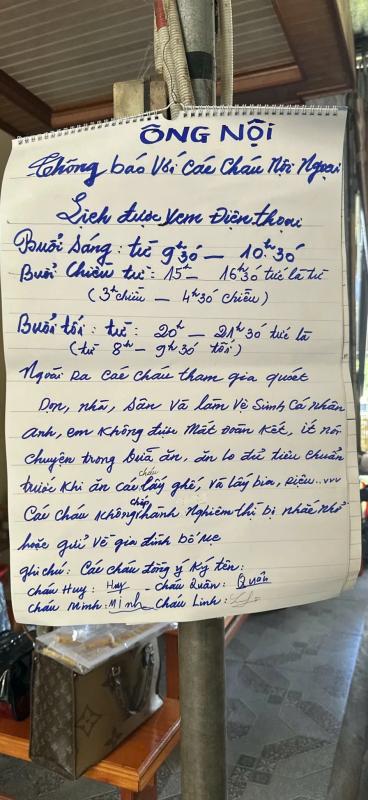 ÔNG NỘI
Thông báo Với Các Cháu Nội Ngoại
Lịch được xem Điện thoại
Buổi Sáng: từ 9h30 — 10h30
Buổi Chiều từ: 15h — 16h30 tức là từ
(3h chiều — 4h30 chiều)
Buổi tối: từ: 20h — 21h30 tức là
(từ 8h — 9h30 tối)
Ngoài Ra các cháu tham gia quét
Dọn, nhà, Sân Và làm Vệ Sinh Cá nhân
anh, em không được Mất Đoàn Kết, ít nói
chuyện trong Bữa ăn, ăn lo đủ tiêu chuẩn
trước khi ăn các cháu lấy ghế, Và lấy bia, Rượu..vvv
Các cháu không chấp hành Nghiêm thì bị nhắc nhở
hoặc gửi Về gia đình bố Mẹ
ghi chú: Các cháu đồng ý Ký tên:
cháu Huy: Huy - cháu Quân: Quân
cháu Minh: Minh Cháu Linh: